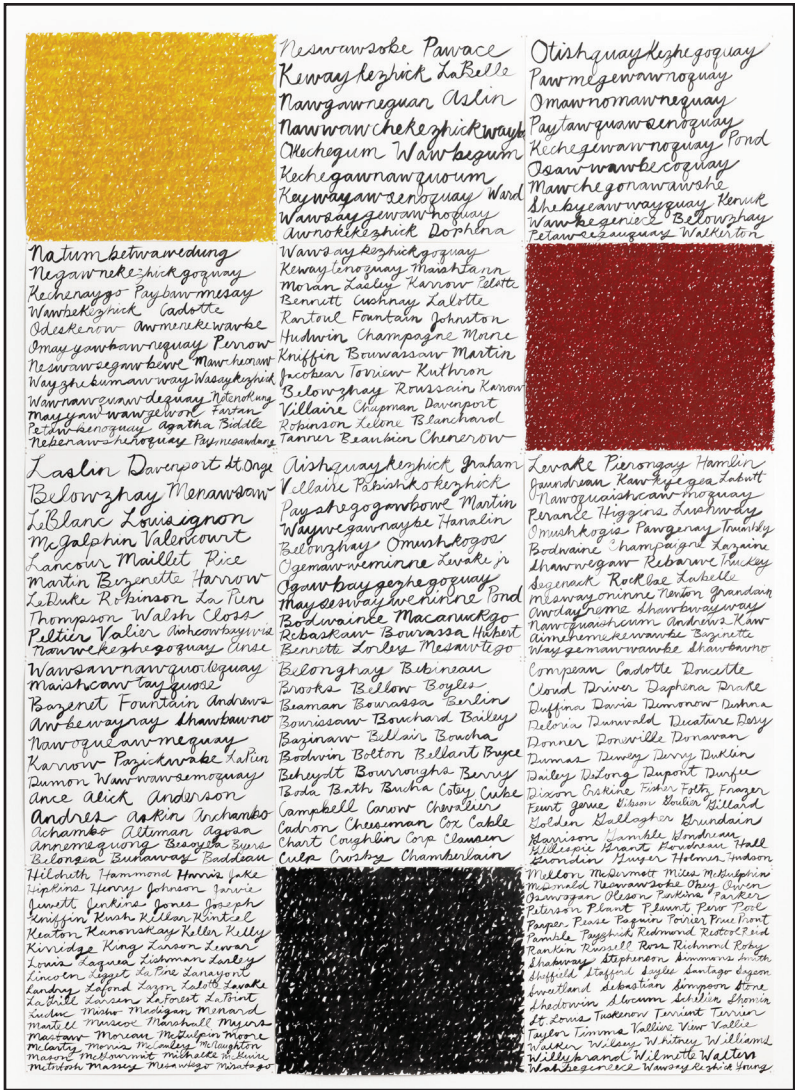 Neswawsobe Pawace
Keway kezhick LaBelle
Nawgawneguan Aslin
Nawwawchekezhickwayb
Okechegum Wawbegum
Kechegawnawquoum
Keywayawsenoquay Ward
Wawsaygewawnoquay
Awnokekezhick Dophena
Otishquaykezhegoquay
Pawmegewawnoquay
Omawnomawnequay
Paytawquawsenoquay
Kechegewawnoquay Pond
Osawwawbecoquay
Mawchegonawawshe
Shebyeawwayquay Kenuk
Wawbegeniece Belowzhay
Petawsezauquay Walkerton
Natumbetwawedung
Negawnekezhickgoquay
Kechenaygo Paybawmesay
Wawbekezhick Cadotte
Odeskerow Awmenekewawbe
Omayyawbawnequay Perrow
Neswawsegawbewe Mawcheonaw
Wayzhebumawway Wasaykezhick
Wawnawquawdequay Notenokung
Mayyawwawgewon Fartan
Petawbenoquay Agatha Biddle
Nebenawshenoquay Paymesawdung
Wawsaykezhickgoquay
Kewaytenoquay Maishtann
Moran Lasley Karrow Pelotte
Bennett Cushnay Lalotte
Rantoul Fountain Johnston
Hudwin Champagne Moine
Kniffin Bourwassaw Martin
Jacobear Torview Kuthron
Belowzhay Roussain Karrow
Villaire Chapman Davenport
Robinson Lelone Blanchard
Tanner Beaubien Chenerow
Laslin Davenport St. Onge
Belowzhay Menawsaw
LeBlanc Louisignon
McGalphin Valencourt
Lancour Maillet Rice
Martin Bezenette Harrow
LeDuke Robinson La Pien
Thompson Walsh Closs
Peltier Valier Aishcowbaywis
Nawwekezhegoquay Anse
Aishquaykezhick Graham
Villaire Pabishkokezhick
Payshegogawbowe Martin
Waywegawnaybe Hanalin
Belonzhay Omushkogos
Ogemawweminne Levake jr
Ogawbaygezhegoquay
Mayseswayweninne Pond
Bodwaince Macanuckgo
Rebaskaw Bourassa Hubert
Bennette Lorley Mesawtego
Levake Pierongay Hamlin
Gaundreau Kawkyegea Labutt
Nawoquaishcawmoquay
Perance Higgins Lushway
Omushkogis Pawgenay Trumbly
Bodwaine Champaigne Lazaine
Shawwegaw Rebarwe Truckey
Segenack Rocklae Labelle
Meswayoninne Newton Grandain
Awdayneme Shawbwayway
Nawoquaishcum Andrews Kaw
Aimenemekewawbe Bazinette
Waygemawwawbe Shawbawno
Wawsawnawquodequay
Maishcawtayquose
Bazenet Fountain Andrews
Awbewaynay Shawbawno
Nawoqueawmequay
Karrow Pazickwabe LaPien
Dumon Wawwawsemoquay
Ance Alick Anderson
Andres Askin Archambo
Achambo Alteman Agosa
Annemequong Besoyea Byers
Belongea Bunaway Baddeau
Belonghay Bebineau
Brooks Bellow Boyles
Beaman Bourassa Berlin
Bourissaw Bouchard Bailey
Bazinaw Bellair Boucha
Bodwin Bolton Bellant Bryce
Beheydt Bourroughs Berry
Boda Bath Bucha Cotey Cube
Campbell Carow Chevalier
Cadron Cheeseman Cox Cable
Chart Coughlin Corp Clausen
Culp Crosby Chamberlain
Compeau Cadotte Doucette
Cloud Driver Daphena Drake
Duffina Davis Dumonow Deshna
Deloria Dunwald Ducature Desy
Donner Doneville Donavan
Dumas Dewey Derry Duklin
Dailey DeLong Dupont Durfee
Dixon Erskine Fisher Foltz Frazer
Feurt Gerue Gibson Goulier Gillard
Golden Gallagher Grundain
Garrison Gamble Gondreau
Gillespie Grant Goudreau Hall
Grondin Guyer Holmes Hudson
Hildreth Hammond Harris Jake
Hipkins Henry Johnson Jarvie
Jewett Jenkins Jones Joseph
Kniffin Kush Kellar Kintcel
Keaton Kanonskay Keller Kelly
Kirridge King Larson Levar
Louis Laquea Lishman Lasley
Lincoln Legget LaPine Lanayont
Landry Lafond Lazon Lalotte Lavake
La Grill Larsen LaForest LaPoint
Luduc Misho Madigan Menard
Martell Muscoe Marshall Myers
Mastaw Moreau McGulpin Moore
McCarty Morris McCauley McNaughton
Mason McGourmit Mihalke McGuire
McIntosh Massey Mesawtego Misatago
Mellon McDermott Miles McGulphin
McDonald Neswawsobe Obey Owen
Osawogan Oleson Perkins Parker
Peterson Plant Plaunt Pero Pool
Paxper Pease Paquin Poirier Prue Pront
Pamble Payshick Redmond Restool Reid
Rankin Russell Ross Richmond Roby
Shabway Stephenson Simmons Smith
Sheffield Stafford Sayles Santago Sagson
Sweetland Sebastian Simpson Stone
Shedowin Slocum Schelien Shomin
St. Louis Tuskenow Terrient Terrien
Taylor Timms Valliere View Vallie
Walker Wilsey Whitney Williams
Willybrand Wilmette Walters
Wahbegeneece Wawsaykezhick Young